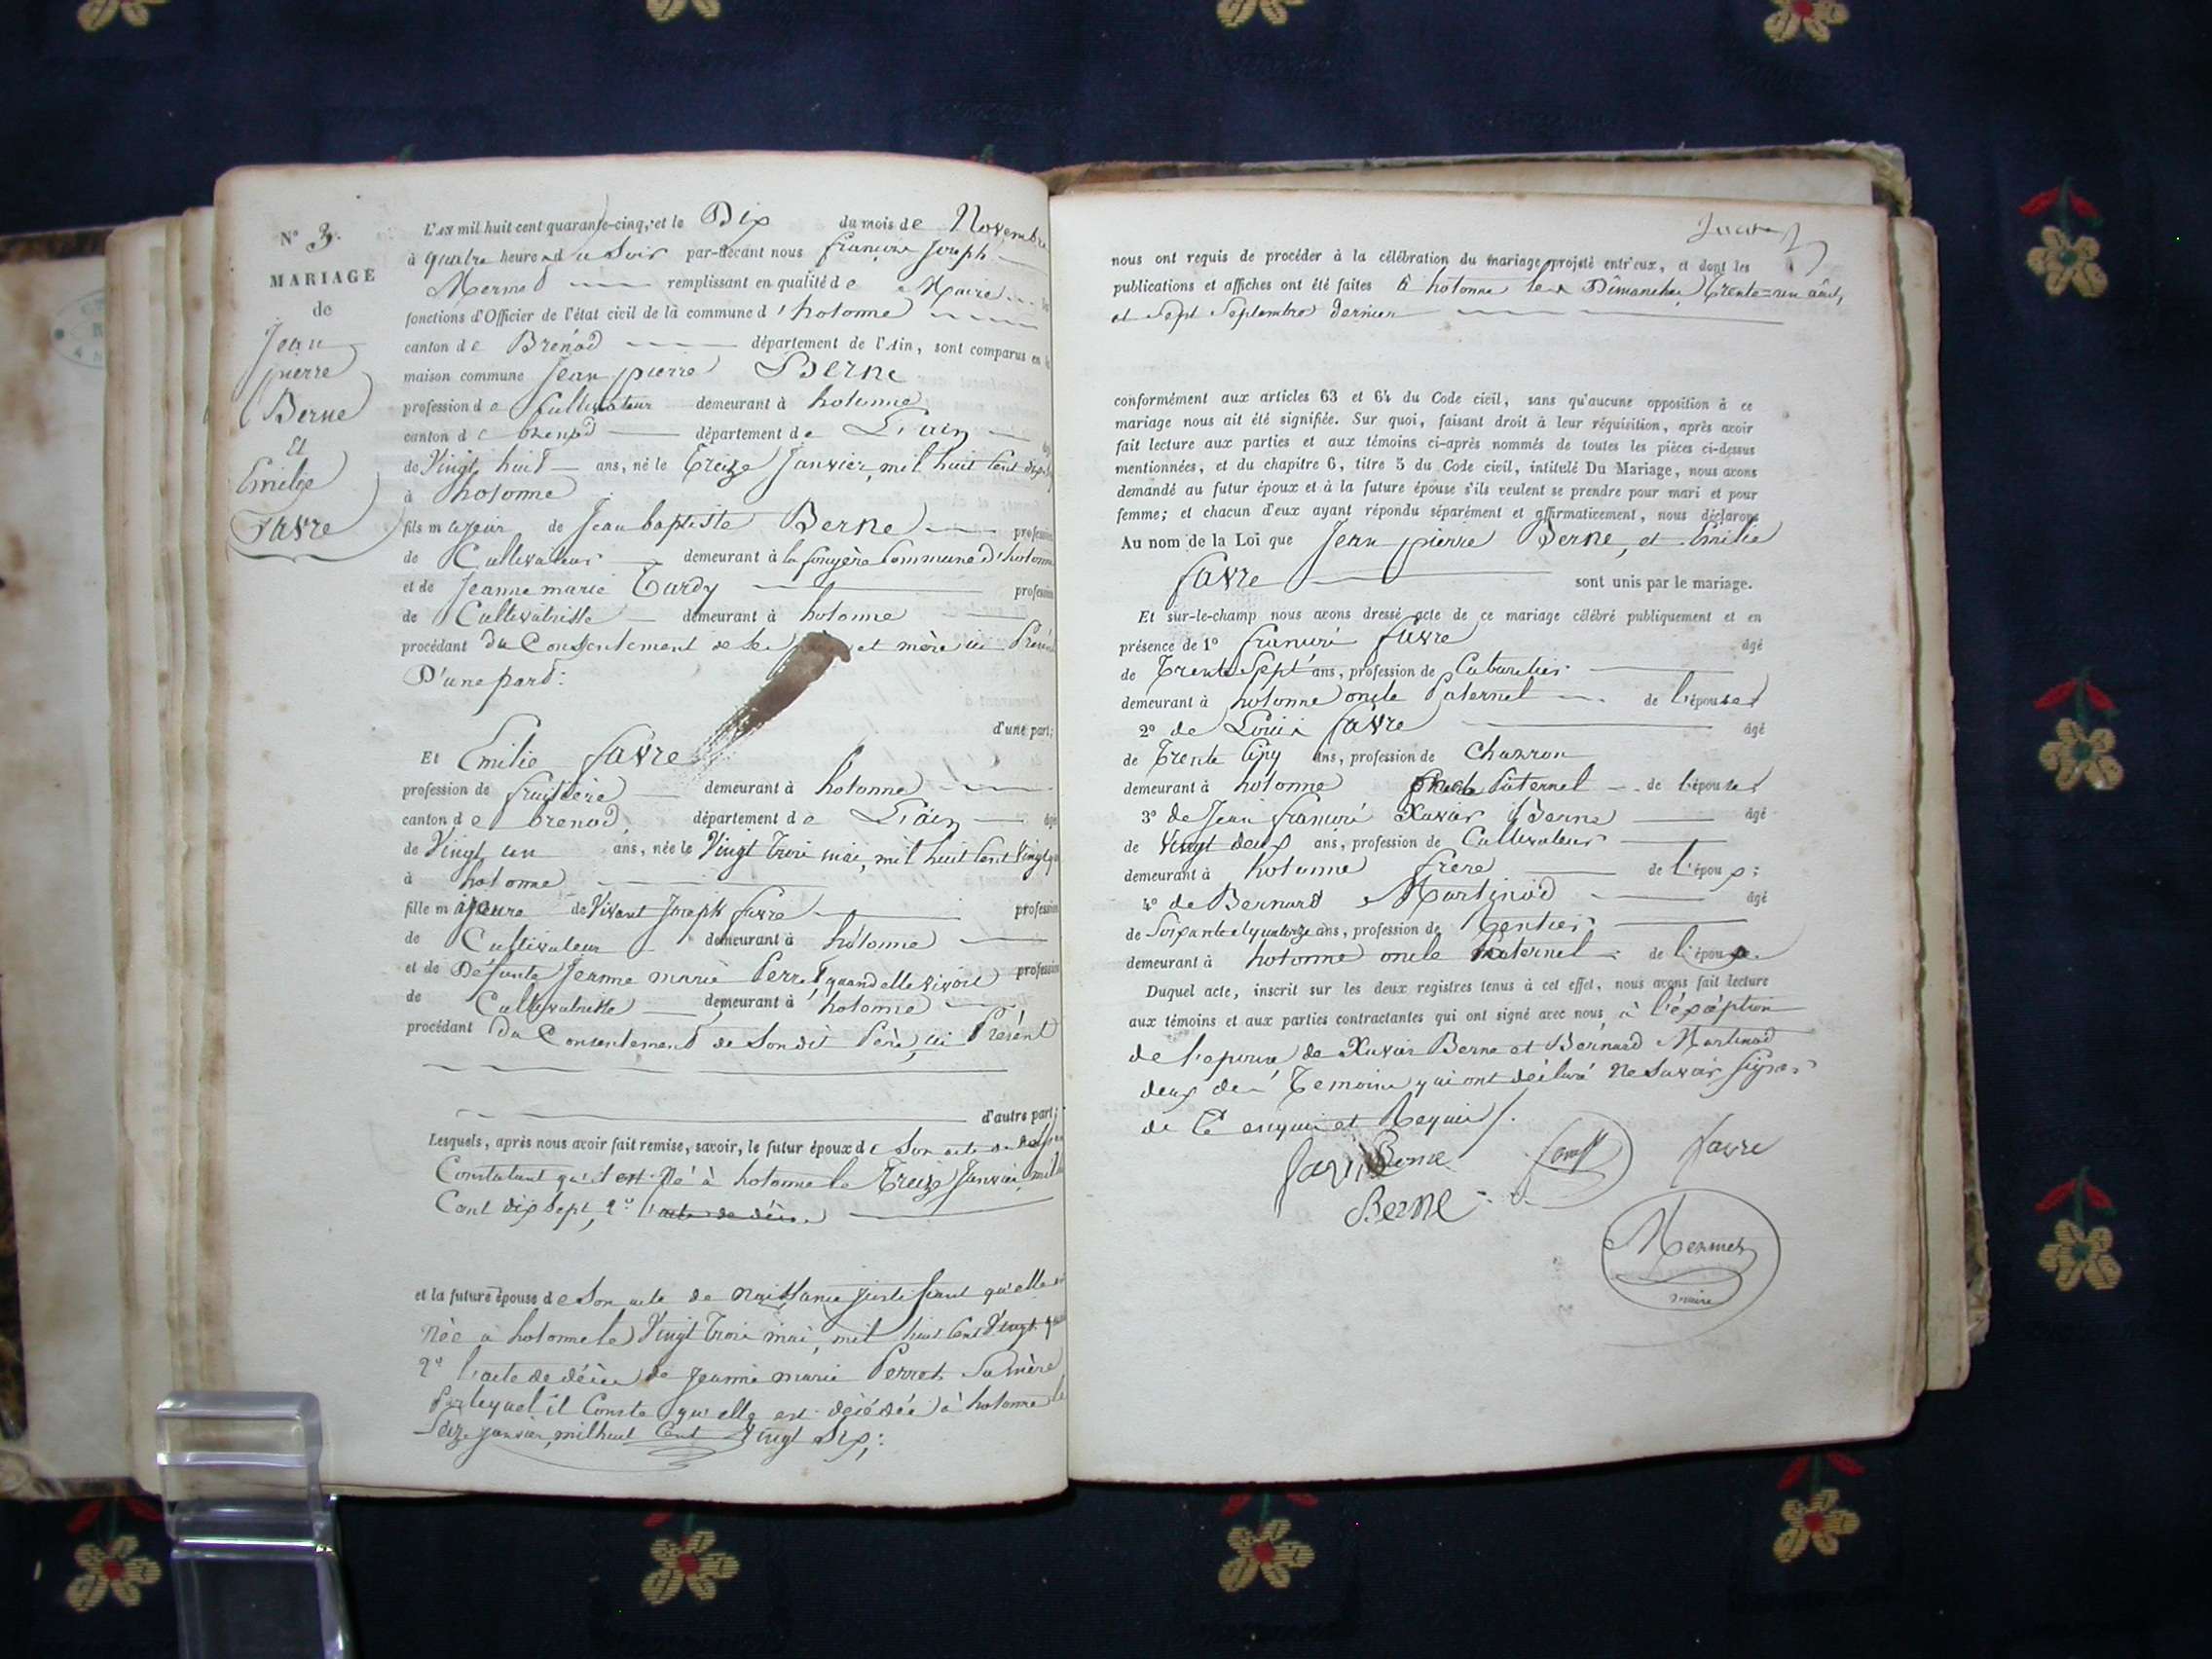 N° 3.
MARIAGE
de
Jean
pierre
Berne
Et
Emilie
Favre
L'AN mil huit cent quarante-cinq, et le Dix du mois de Novembre
à quatre heures du Soir par-devant nous françois Joseph
Mermet remplissant en qualité de Maire
fonctions d'Officier de l'état civil de la commune d'hotonne
canton de Brénod département de l'Ain, sont comparus en la
maison commune Jean pierre Berne
profession de Cultivateur demeurant à hotonne
canton de brenod département de L'ain
de Vingt huit ans, né le Treize Janvier, mil huit Cent dix
à hotonne
fils majeur de Jean baptiste Berne profession
de Cultivateur demeurant à la fougère Commune d'hotonne
et de Jeanne marie Tardy profession
de Cultivatrisse demeurant à hotonne
procédant du Consentement de et mère ici
D'une part:
d'une part;
Et Emilie favre
profession de fruitière demeurant à hotonne
canton de brenod, département de L'ain âgé
de Vingt un ans, née le Vingt Trois mai, mil huit Cent Vingt
à hotonne
fille majeure de Vivant Joseph favre profession
de Cultivateur demeurant à hotonne
et de Défunte Jeanne marie Perret, quand elle vivoit profession
de Cultivatrisse demeurant à hotonne
procédant du Consentement de Son dit Père, ici Présent
d'autre part;
Lesquels, après nous avoir fait remise, savoir, le futur époux de Son acte de
Constatant qu'il est Né à hotonne le Treize Janvier mil
Cent dix Sept, 2° l'acte de décè
et la future épouse de Son acte de Naissance justifiant qu'elle
Née à hotonne le Vingt Trois mai, mil huit Cent Vingt
2° l'acte de décès de Jeanne marie Perret Sa mère
Par lequel il Conste qu'elle est décédée à hotonne le
janvier, mil huit Cent Vingt Six;
nous ont requis de procéder à la célébration du mariage projeté entr'eux, et dont les
publications et affiches ont été faites à hotonne les Dimanches Trente=un août,
et Sept Septembre dernier
conformément aux articles 63 et 64 du Code civil, sans qu'aucune opposition à ce
mariage nous ait été signifiée. Sur quoi, faisant droit à leur réquisition, après avoir
fait lecture aux parties et aux témoins ci-après nommés de toutes les pièces ci-dessus
mentionnées, et du chapitre 6, titre 5 du Code civil, intitulé Du Mariage, nous avons
demandé au futur époux et à la future épouse s'ils veulent se prendre pour mari et pour
femme; et chacun d'eux ayant répondu séparément et affirmativement, nous déclarons
Au nom de la Loi que Jean pierre Berne, et Emilie
favre sont unis par le mariage.
Et sur-le-champ nous avons dressé acte de ce mariage célébré publiquement et en
présence de 1° françois favre âgé
de Trente Sept ans, profession de Cabaretier
demeurant à hotonne oncle Paternel de l'épouse
2° de Louis favre âgé
de Trente Cinq ans, profession de Charron
demeurant à hotonne oncle Paternel de l'épouse
3° de Jean françois Xavier Berne âgé
de Vingt deux ans, profession de Cultivateur
demeurant à hotonne frere de l'époux:
4° de Bernard Martinod âgé
de Soixante et quatorze ans, profession de Rentier
demeurant à hotonne oncle Maternel de l'époux.
Duquel acte, inscrit sur les deux registres tenus à cet effet, nous avons fait lecture
aux témoins et aux parties contractantes qui ont signé avec nous, à l'éxéption
de l'epouse, de Xavier Berne et Bernard Martinod
deux des Temoins qui ont déclaré Ne Savoir signer
de Ce enquis et Requis.
Berne
favre
Berne
Mermet
maire